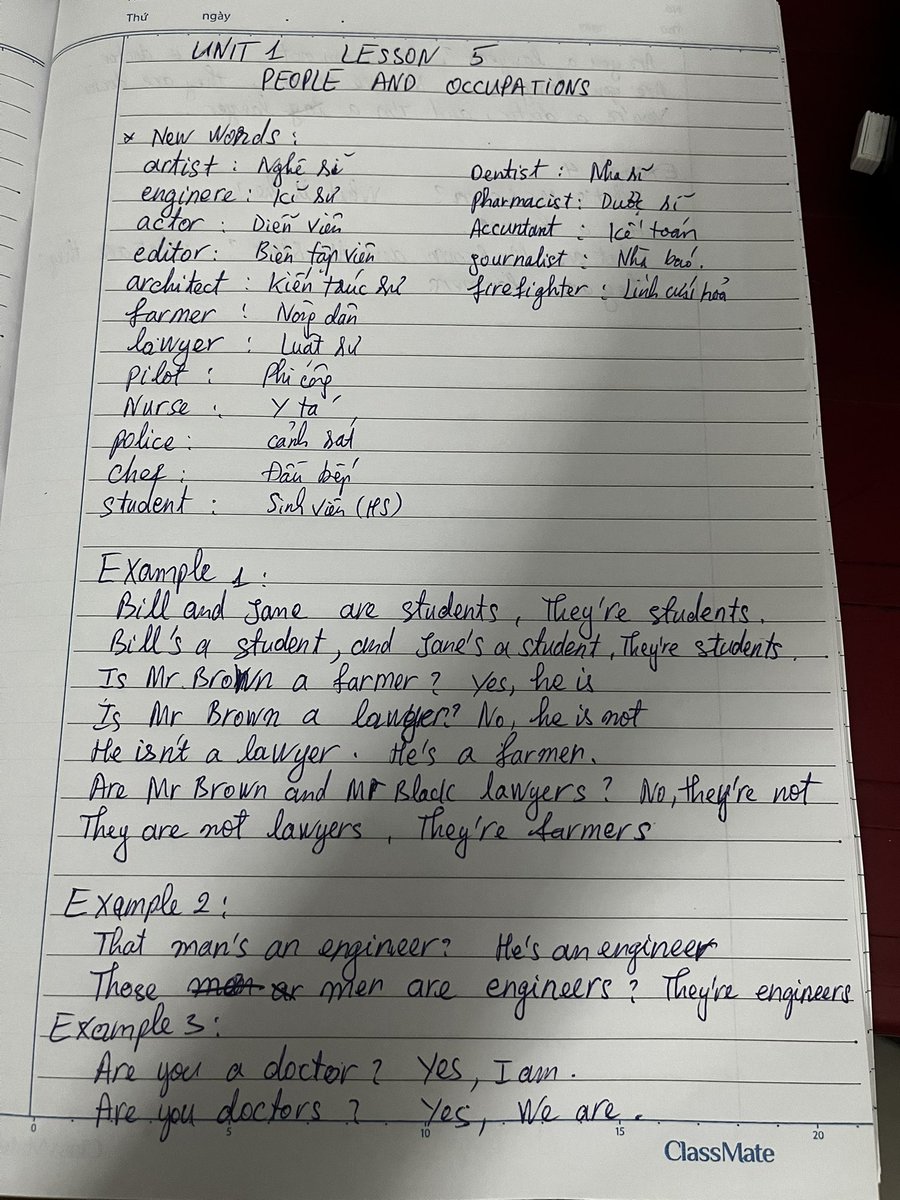 Thứ ngày
UNIT 1 LESSON 5
PEOPLE AND OCCUPATIONS
* New Words:
artist : Nghệ sĩ
enginere : kĩ sư
actor : Diễn viên
editor : Biên tập viên
architect : kiến trúc sư
farmer : Nông dân
lawyer : Luật sư
pilot : Phi công
Nurse : Y tá
police : cảnh sát
chef : Đầu bếp
student : Sinh viên (HS)
Dentist : Nha sĩ
Pharmacist : Dược sĩ
Accuntant : kế toán
journalist : Nhà báo.
firefighter : Lính cứu hoả
Example 1 :
Bill and Jane are students, They're students.
Bill's a student, and Jane's a student, They're students.
Is Mr. Brown a farmer? Yes, he is
Is Mr Brown a lawyer? No, he is not
He isn't a lawyer. He's a farmer.
Are Mr Brown and Mr Black lawyers? No, they're not
They are not lawyers, They're farmers
Example 2 :
That man's an engineer? He's an engineer
Those men are engineers? They're engineers
Example 3 :
Are you a doctor? Yes, I am.
Are you doctors? Yes, We are.
0 5 10 15 20
ClassMate